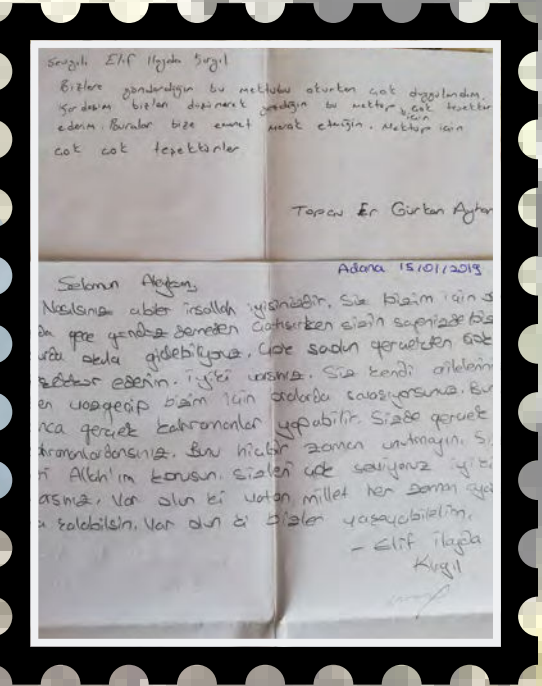 Sevgili Elif İlayda
Bizlere gönderdiğin bu mektubu okurken çok duygulandım.
bizleri düşünerek bu mektup için çok teşekkür
ederim. Buralar bize emanet merak etmeyin. Mektup için
çok çok teşekkürler
Topçu Er Gürkan
Adana 15/01/2019
Selamun Aleyküm,
Nasılsınız abiler inşallah iyisinizdir. Siz bizim için
gece gündüz demeden çalışırken sizin sayenizde
okula gidebiliyoruz. Çok gerçekten çok
ederim. iyiki varsınız. Siz kendi
vazgeçip bizim için oralarda savaşıyorsunuz. Bu
gerçek kahramanlar yapabilir. Sizde gerçek
Bunu hiçbir zaman unutmayın.
Allah'ım korusun. Sizleri çok seviyoruz iyiki
Var olun ki vatan millet her zaman
kalabilsin. Var olun ki bizler yaşayabilelim.
- Elif ilayda